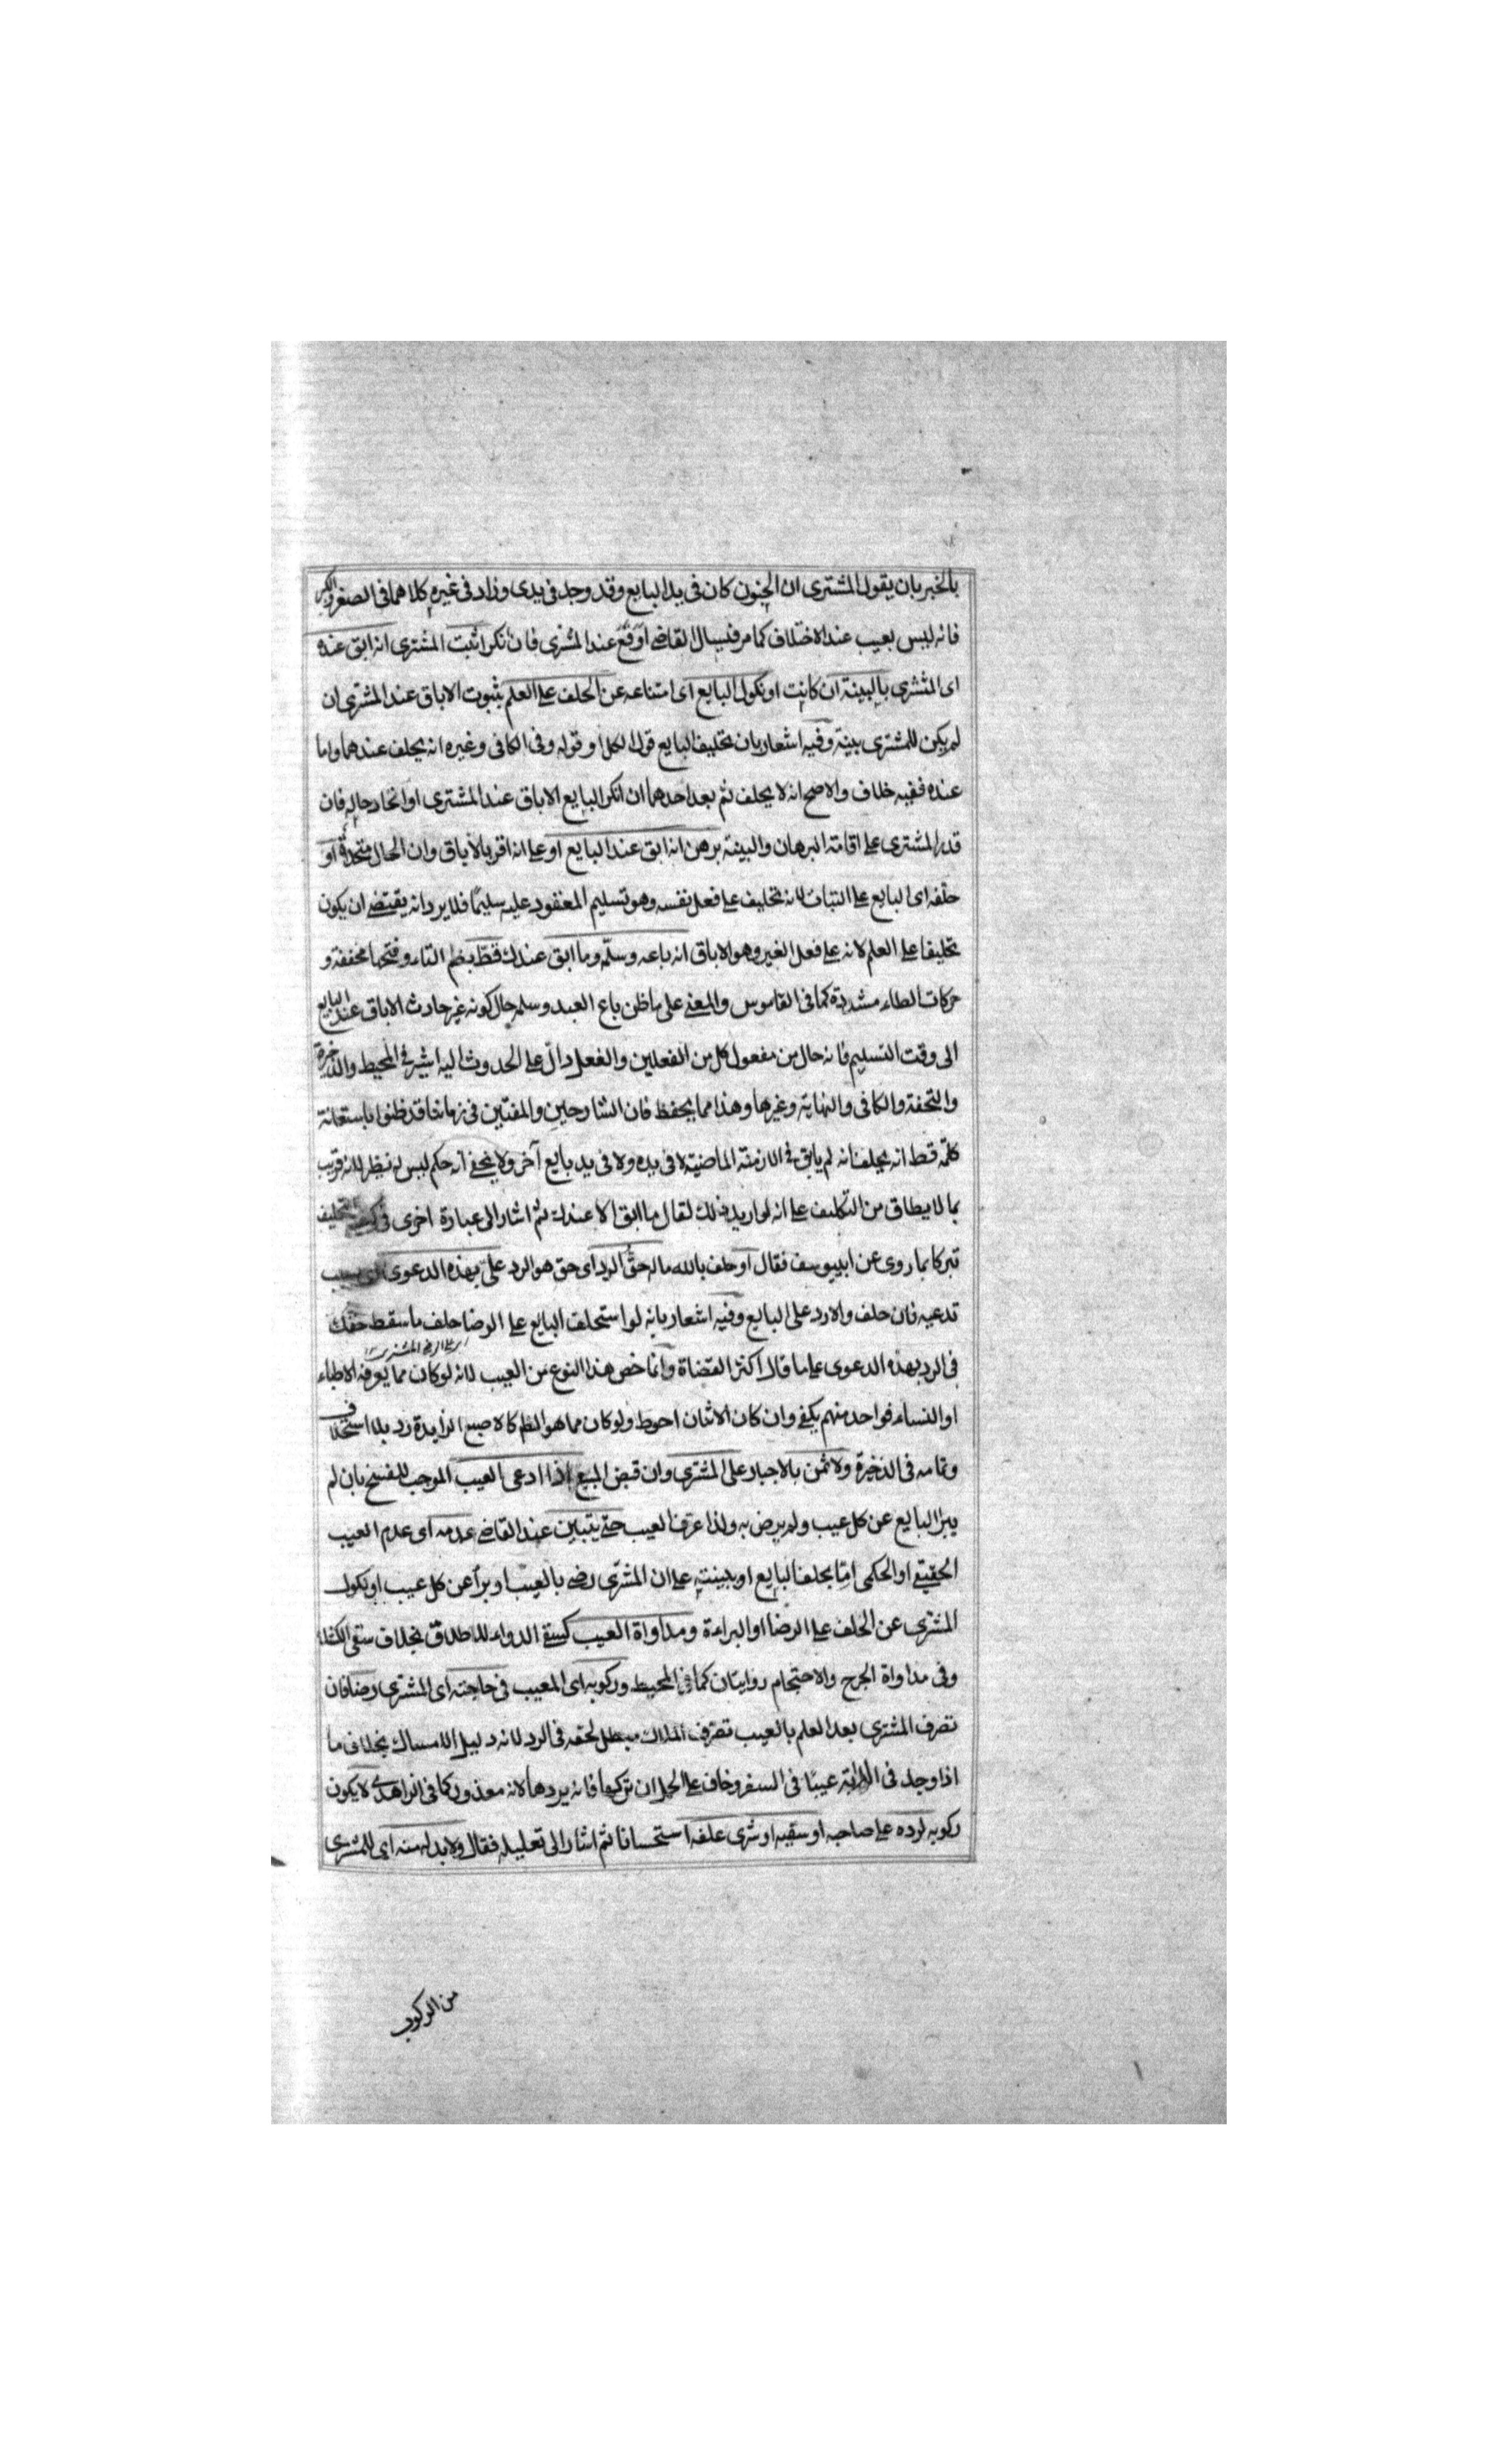 بالخبر بان يقول المشترى ان الجنون كان فى يد البايع وقد وجد فى يدى وزاد فى غيره كلاهما فى الصغر والكبر
فانه ليس بعيب عند الاختلاف كما مر فيسال القاضى اوقع عند المشترى فان نكر اثبت المشترى انه ابق عنده
اى المشترى بالبينة ان كانت او نكول البايع اى امتناعه عن الحلف على العلم بثبوت الاباق عند المشترى ان
لم يكن للمشترى بينة وفيه اشعار بان تحليف البايع قول الكل او قوله وفى الكافى وغيره انه يحلف عندهما واما
عنده ففيه خلاف والاصح انه لا يحلف ثم بعد احدهما ان انكر البايع الاباق عند المشترى او اتحاد حاله فان
قدر المشترى على اقامة البرهان والبينة برهن انه ابق عند البايع او على انه اقر بالاباق وان الحال متحدة او
حلفه اى البايع على البتات لانه تحليف على فعل نفسه وهو تسليم المعقود عليه سليمًا فلا يرد انه يقتضى ان يكون
تحليفا على العلم لانه على فعل الغير وهو الاباق انه باعه وسلمه وما ابق عندك قطّ بضم التاء وفتحها مخففة و
حركات الطاء مشددة كما فى القاموس والمعنى على ما ظن باع العبد وسلمه حال كونه غير حادث الاباق عند البايع
الى وقت التسليم فانه حال من مفعول كل من الفعلين والفعل دالّ على الحدوث اليه اشير فى المحيط والذخيرة
والتحفة والكافى والنهاية وغيرها وهذا مما يحفظ فان الشارحين والمفتين فى زماننا قد ظنوا باستعانة
كلمة قط انه يحلف انه لم يابق فى الازمنة الماضية لا فى يده ولا فى يد بايع آخر ولا يخفى انه حكم ليس له نظير لانه قريب
بما لا يطاق من التكليف على انه لو اريد ذلك لقال ما ابق الا عندك ثم اشار الى عبارة اخرى فى التحليف
تبركا بما روى عن ابى يوسف فقال او حلف بالله ماله حقّ الرد اى حق هو الرد علىّ بهذه الدعوى
تدعيه فان حلف والا رد على البايع وفيه اشعار بانه لو استحلف البايع على الرضا حلف ما سقط حقك
فى الرد بهذه الدعوى على ما قال اكثر القضاة وانما خص هذا النوع من العيب لانه لو كان مما يعرفه الاطباء
او النساء فواحد منهم يكفى وان كان الاثنان احوط ولو كان مما هو الظم كالاصبع الزايدة رد بلا استحلاف
وتمامه فى الذخيرة ولا ثمن بالاجبار على المشترى وان قبض المبيع اذا ادعى العيب الموجب للفسخ بان لم
يبرا البايع عن كل عيب ولم يرض به ولذا عرف العيب حتى يتبين عند القاضى عدمه اى عدم العيب
الحقيقى او الحكمى امّا بحلف البايع او ببينته على ان المشترى رضى بالعيب او برأ عن كل عيب او نكول
المشترى عن الحلف على الرضا او البراءة ومداواة العيب كسقى الدواء للاطلاق بخلاف سقى
وفى مداواة الجرح والاحتجام روايتان كما فى المحيط وركوبه اى المعيب فى حاجته اى المشترى رضا فان
تصرف المشترى بعد العلم بالعيب تصرّف الملاك مبطل لحقه فى الرد لانه دليل الامساك بخلاف ما
اذا وجد فى الدابة عيبًا فى السفر وخاف على الحمل ان تركها فانه يردها لانه معذور كما فى الزاهدى لا يكون
ركوبه لرده على صاحبه او سقيه او شرى علفه استحسانا ثم اشار الى تعليله فقال ولا بد له منه اى للمشترى
من الركوب